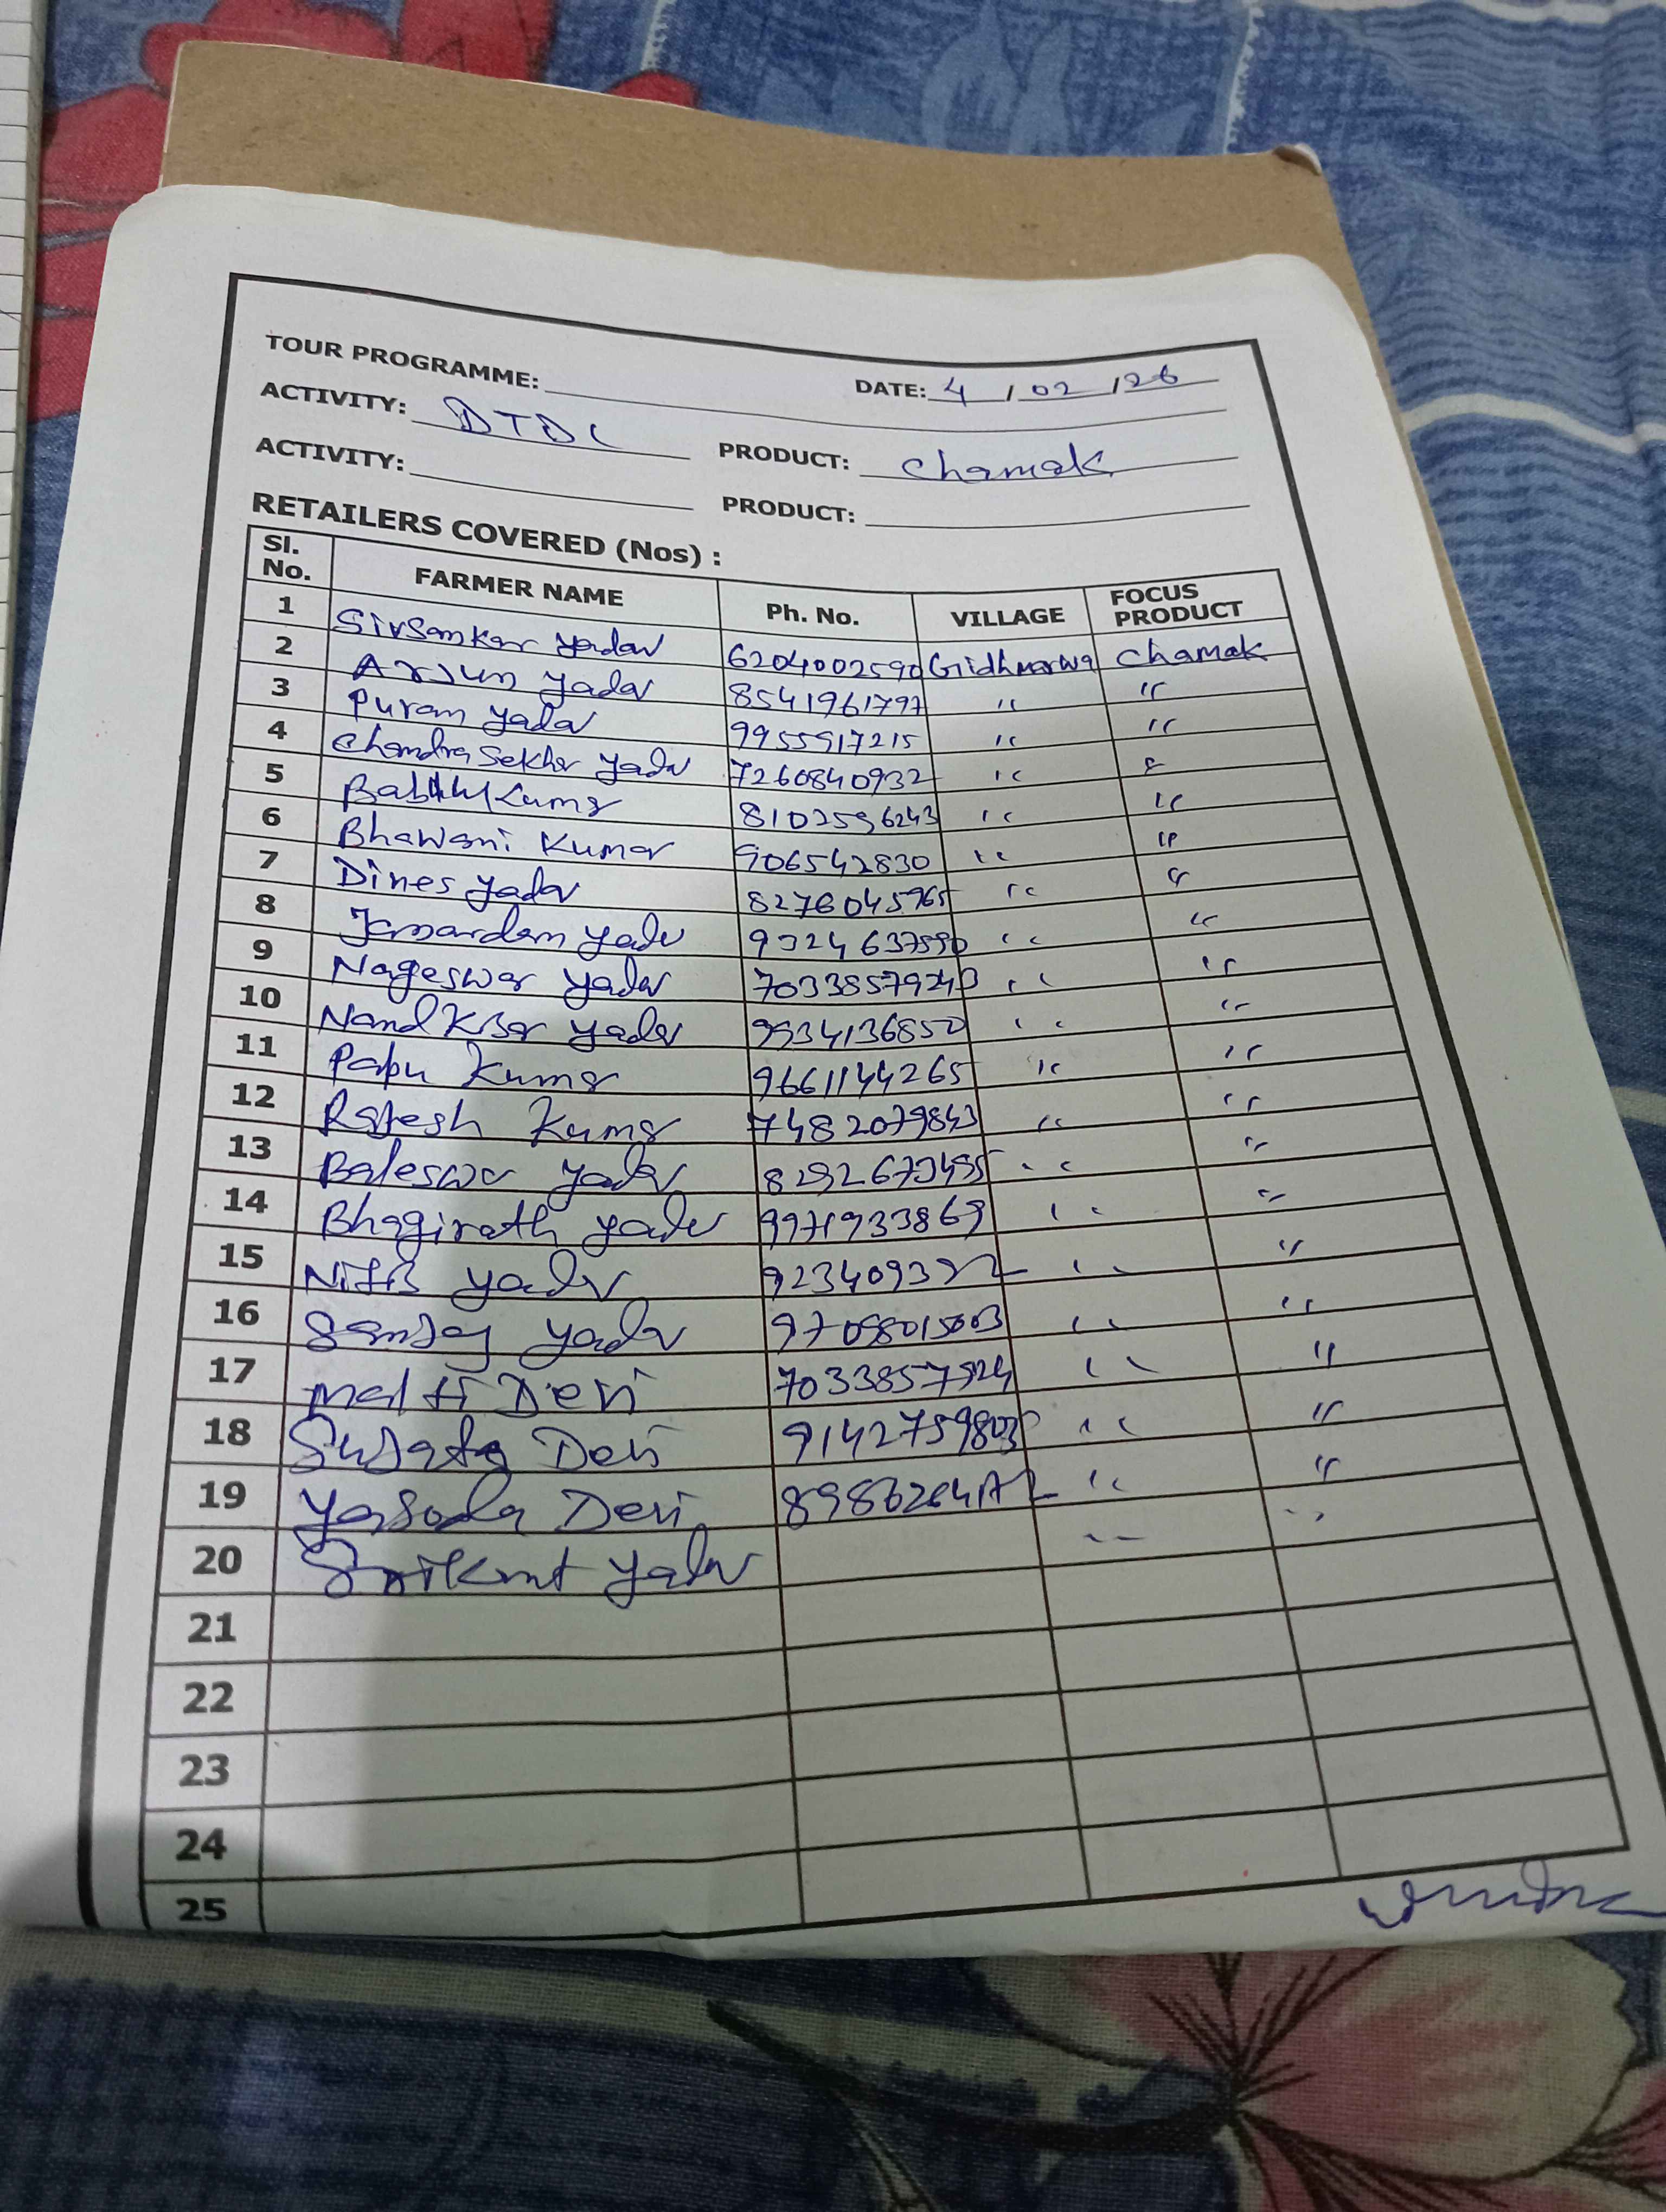 TOUR PROGRAMME: DATE: 4 / 02 / 26
ACTIVITY: DTDC PRODUCT: Chamak
ACTIVITY: PRODUCT:
RETAILERS COVERED (Nos) :
Sl. No. FARMER NAME Ph. No. VILLAGE FOCUS PRODUCT
1 Sivsankar Yadav 6204002590 Gidhmarwa Chamak
2 Arjun Yadav 8541961797 " "
3 Puran Yadav 9955917215 " "
4 Chandra Sekhar Yadav 7260840932 " "
5 Kumar 8102596243 " "
6 Bhawani Kumar 906542830 " "
7 Dines Yadav 8276045965 " "
8 Janardan Yadav 9324637590 " "
9 Nageswar Yadav " "
10 Yadav 9934136850 " "
11 Papu Kumar 9661144265 " "
12 Rajesh Kumar 7482079843 " "
13 Baleswar Yadav 8292673495 " "
14 Bhagirath Yadav 9971933869 " "
15 Yadav " "
16 Sanjay Yadav " "
17 Malti Devi 7033857924 " "
18 Sujata Devi " "
19 Yasoda Devi " "
20 Srikant Yadav " "
21
22
23
24
25